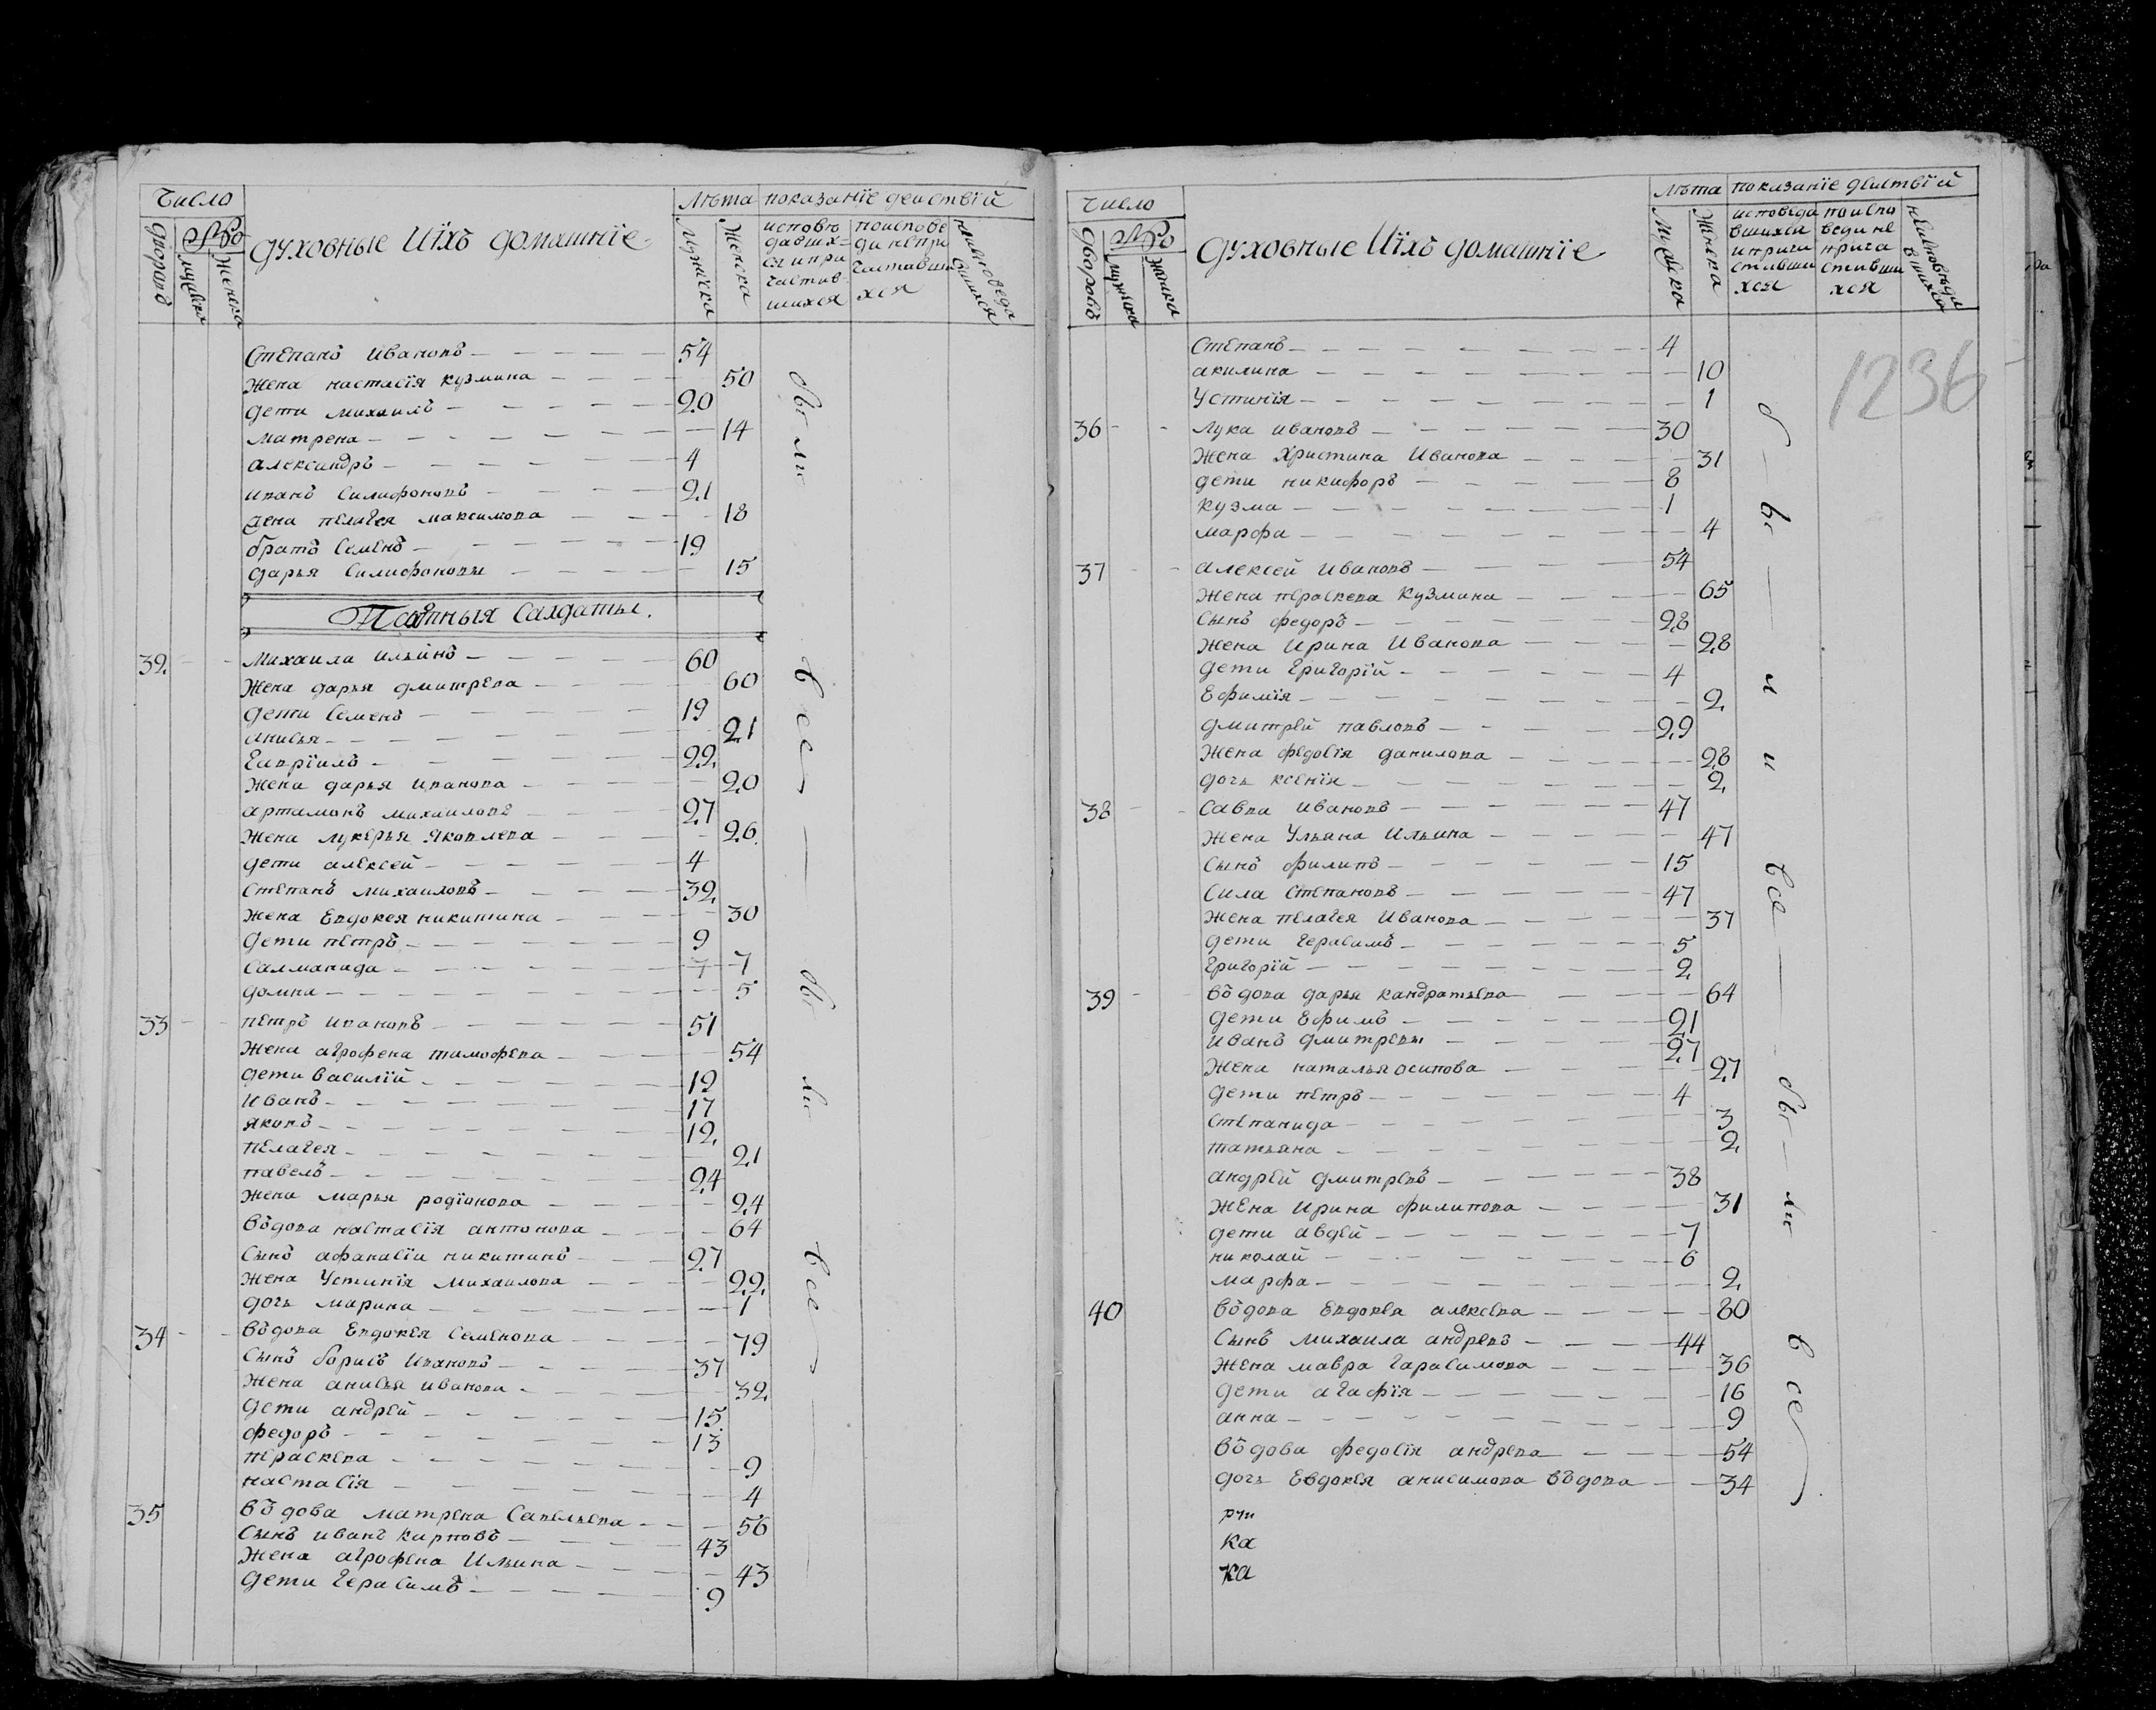 Число
Лѣта показанїе деиствїй
дворовъ
мужеска
женска
духовные Иїхъ домашнїе
мужеска
женска
исповѣ
давших=
ся и при
частив
шихся
поиспове
ди непри
частивши
хся
неисповеда
вшихся
Степанъ Ивановъ 54
жена настасїя кузмина 50
дети михаилъ 20
матрена 14
александръ 4
иванъ Силифоновъ 21
жена пелагея максимова 18
братъ Семенъ 19
дарья Силифоновы 15
были
Пахотныя Салдаты.
32 Михаила ильинъ 60
жена дарья дмитрева 60
дети Семенъ 19
анисья 21
Гаврїилъ 22
жена дарья иванова 20
артамонъ михаиловъ 27
жена лукерья яковлева 26
дети алексей 4
степанъ михаиловъ 32
жена Евдокея никитина 30
дети петръ 9
Салманида 7
домна 5
33 петръ ивановъ 51
жена агрофена тимофева 54
дети василїй 19
иванъ 17
яковъ 12
пелагея 21
павелъ 24
жена марья родїонова 24
въдова настасїя антонова 64
сынъ афанасїи никитинъ 27
жена Устинїя михаилова 22
дочь марина 1
34 въдова Евдокея Семенова 79
Сынъ борисъ ивановъ 37
жена анисья иванова 32
дети андрей 15
федоръ 13
праскева 9
настасїя 4
35 въдова матрена Савельева 56
сынъ иванъ карповъ 43
жена агрофена Ильина 43
дети герасимъ 9
все
были
все
Число
Лѣта показанїе деиствїй
дворовъ
мужска
женска
духовные Иїхъ домашнїе
мужеска
женска
исповеда
вшихся
ипричи
стивши
хся
поиспо
веди не
прича
стивши
хся
неисповеда
вшихся
1236
Степанъ 4
акилина 10
Устинїя 1
36 Лука ивановъ 30
жена Христина Иванова 31
дети никифоръ 8
кузма 1
марфа 4
37 алексей Ивановъ 54
жена праскева кузмина 65
Сынъ федоръ 28
жена Ирина Иванова 28
дети григорїй 4
Ефимїя 2
дмитрей павловъ 29
жена федосїя данилова 28
дочь ксенїя 2
38 Савва Ивановъ 47
жена Ульяна Ильина 47
Сынъ филипъ 15
Сила Степановъ 47
жена пелагея Иванова 37
дети герасимъ 5
григорїй 2
39 въдова дарья кандратьева 64
дети Ефимъ 21
иванъ дмитревы 27
жена наталья осипова 27
дети петръ 4
степанида 3
татьяна 2
андрей дмитревъ 38
жена Ирина филипова 31
дети авдей 7
николай 6
марфа 2
40 въдова Евдокея алексева 80
Сынъ михаила андревъ 44
жена мавра гарасимова 36
дети агафїя 16
анна 9
въдова федосїя андрева 54
дочь Евдокея анисимова въдова 34
были
все
были
все
рчи
ка
ка